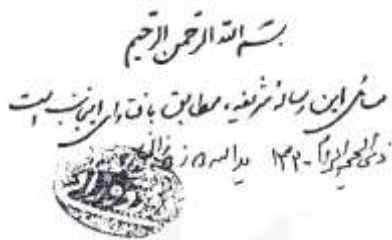 بسم الله الرحمن الرحیم
مسائل این رساله شریفه، مطابق با فتاوای اینجانب است
ذی الحجة الحرام ۱۴۲۰